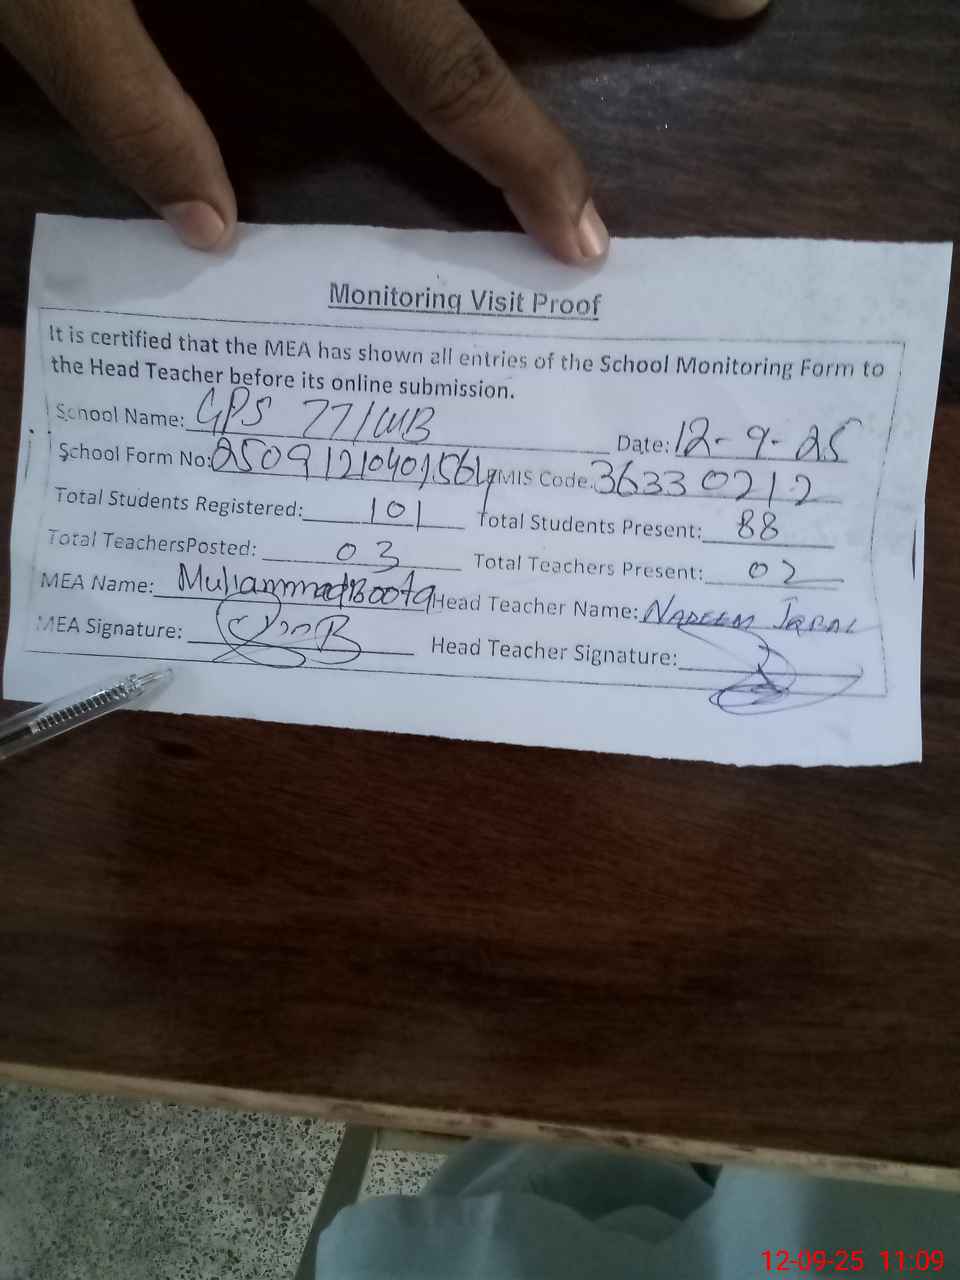 Monitoring Visit Proof
It is certified that the MEA has shown all entries of the School Monitoring Form to
the Head Teacher before its online submission.
School Name: GPS 77/WB Date: 12-9-25
School Form No: EMIS Code: 36330212
Total Students Registered: 101 Total Students Present: 88
Total TeachersPosted: 03 Total Teachers Present: 02
MEA Name: Muhammad Boota Head Teacher Name: NADEEM IQBAL
MEA Signature: Head Teacher Signature:
12-09-25 11:09